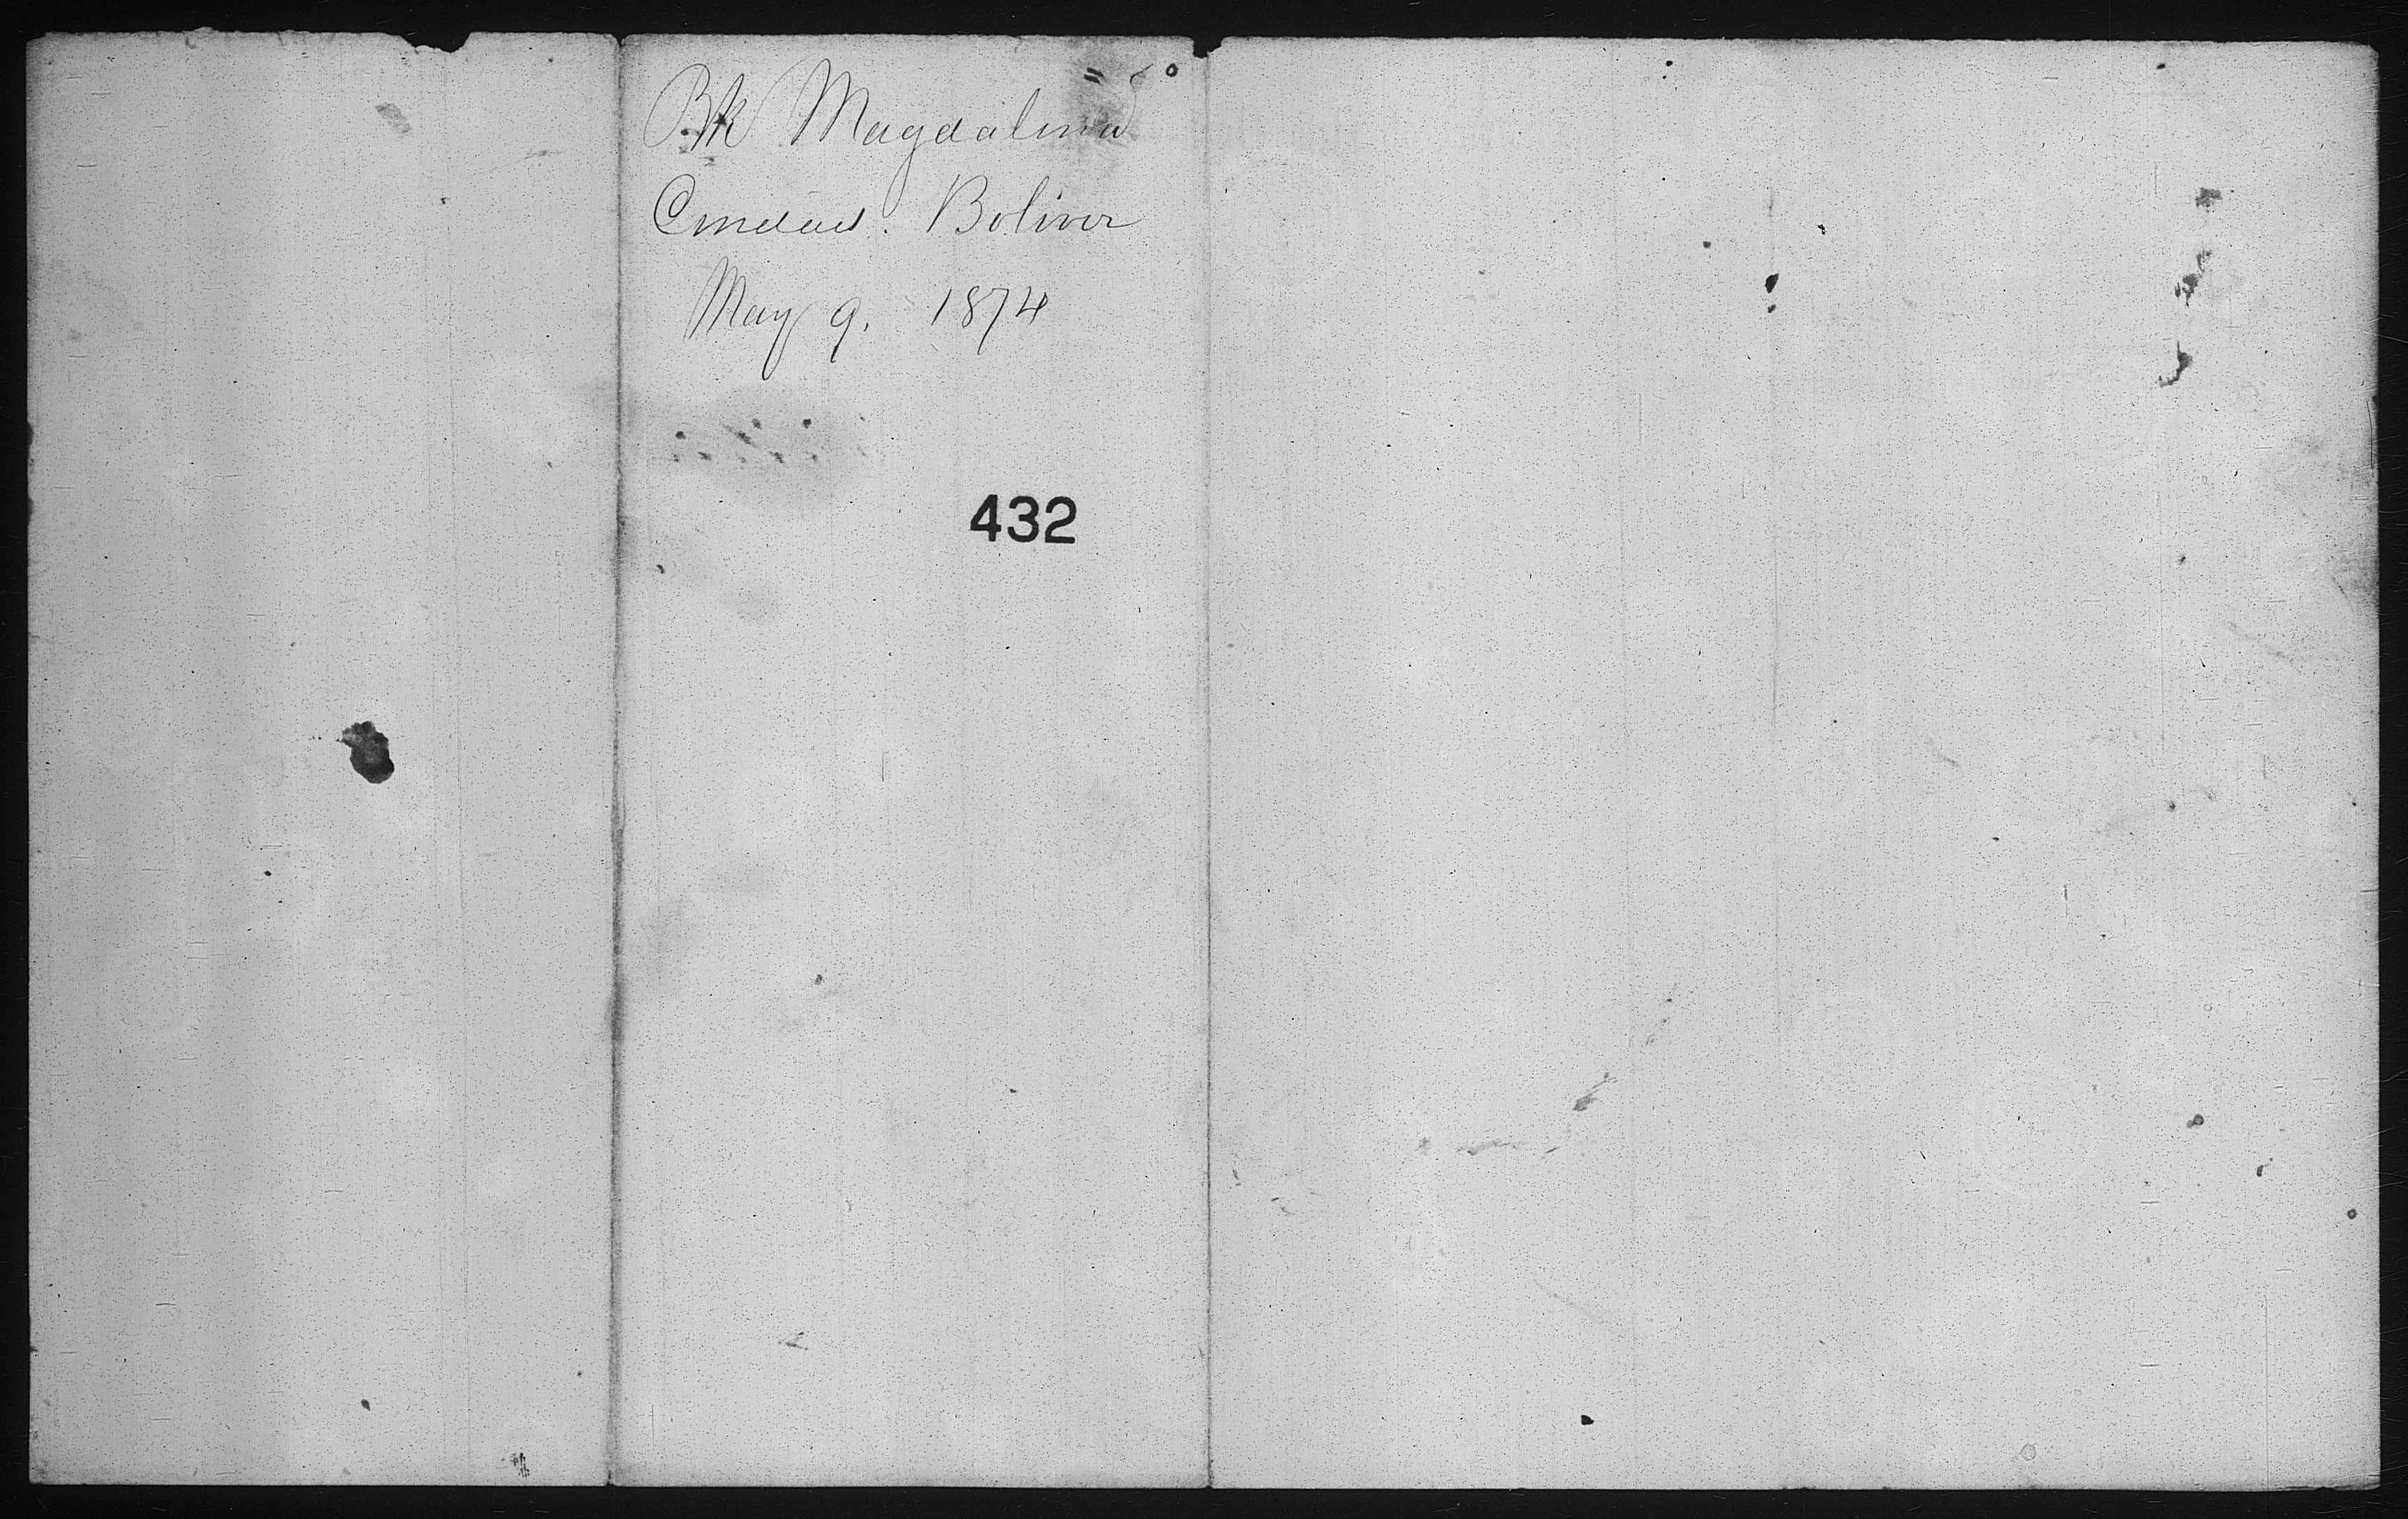 Bk Magdalena
Ciudad. Boliver
May 9. 1874
432